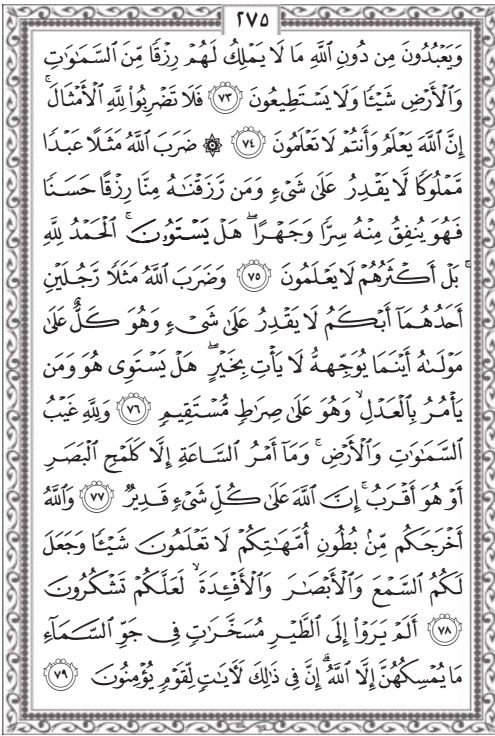 ٢٧٥
وَيَعۡبُدُونَ مِن دُونِ ٱللَّهِ مَا لَا يَمۡلِكُ لَهُمۡ رِزۡقٗا مِّنَ ٱلسَّمَٰوَٰتِ
وَٱلۡأَرۡضِ شَيۡـٔٗا وَلَا يَسۡتَطِيعُونَ ٧٣ فَلَا تَضۡرِبُواْ لِلَّهِ ٱلۡأَمۡثَالَۚ
إِنَّ ٱللَّهَ يَعۡلَمُ وَأَنتُمۡ لَا تَعۡلَمُونَ ٧٤ ۞ ضَرَبَ ٱللَّهُ مَثَلًا عَبۡدٗا
مَّمۡلُوكٗا لَّا يَقۡدِرُ عَلَىٰ شَيۡءٖ وَمَن رَّزَقۡنَٰهُ مِنَّا رِزۡقًا حَسَنٗا
فَهُوَ يُنفِقُ مِنۡهُ سِرّٗا وَجَهۡرًاۖ هَلۡ يَسۡتَوُۥنَۚ ٱلۡحَمۡدُ لِلَّهِ
ۚ بَلۡ أَكۡثَرُهُمۡ لَا يَعۡلَمُونَ ٧٥ وَضَرَبَ ٱللَّهُ مَثَلٗا رَّجُلَيۡنِ
أَحَدُهُمَآ أَبۡكَمُ لَا يَقۡدِرُ عَلَىٰ شَيۡءٖ وَهُوَ كَلٌّ عَلَىٰ
مَوۡلَىٰهُ أَيۡنَمَا يُوَجِّههُّ لَا يَأۡتِ بِخَيۡرٍۖ هَلۡ يَسۡتَوِي هُوَ وَمَن
يَأۡمُرُ بِٱلۡعَدۡلِۙ وَهُوَ عَلَىٰ صِرَٰطٖ مُّسۡتَقِيمٖ ٧٦ وَلِلَّهِ غَيۡبُ
ٱلسَّمَٰوَٰتِ وَٱلۡأَرۡضِۚ وَمَآ أَمۡرُ ٱلسَّاعَةِ إِلَّا كَلَمۡحِ ٱلۡبَصَرِ
أَوۡ هُوَ أَقۡرَبُۚ إِنَّ ٱللَّهَ عَلَىٰ كُلِّ شَيۡءٖ قَدِيرٞ ٧٧ وَٱللَّهُ
أَخۡرَجَكُم مِّنۢ بُطُونِ أُمَّهَٰتِكُمۡ لَا تَعۡلَمُونَ شَيۡـٔٗا وَجَعَلَ
لَكُمُ ٱلسَّمۡعَ وَٱلۡأَبۡصَٰرَ وَٱلۡأَفۡـِٔدَةَۙ لَعَلَّكُمۡ تَشۡكُرُونَ
٧٨ أَلَمۡ يَرَوۡاْ إِلَى ٱلطَّيۡرِ مُسَخَّرَٰتٖ فِي جَوِّ ٱلسَّمَآءِ
مَا يُمۡسِكُهُنَّ إِلَّا ٱللَّهُۚ إِنَّ فِي ذَٰلِكَ لَأٓيَٰتٖ لِّقَوۡمٖ يُؤۡمِنُونَ ٧٩